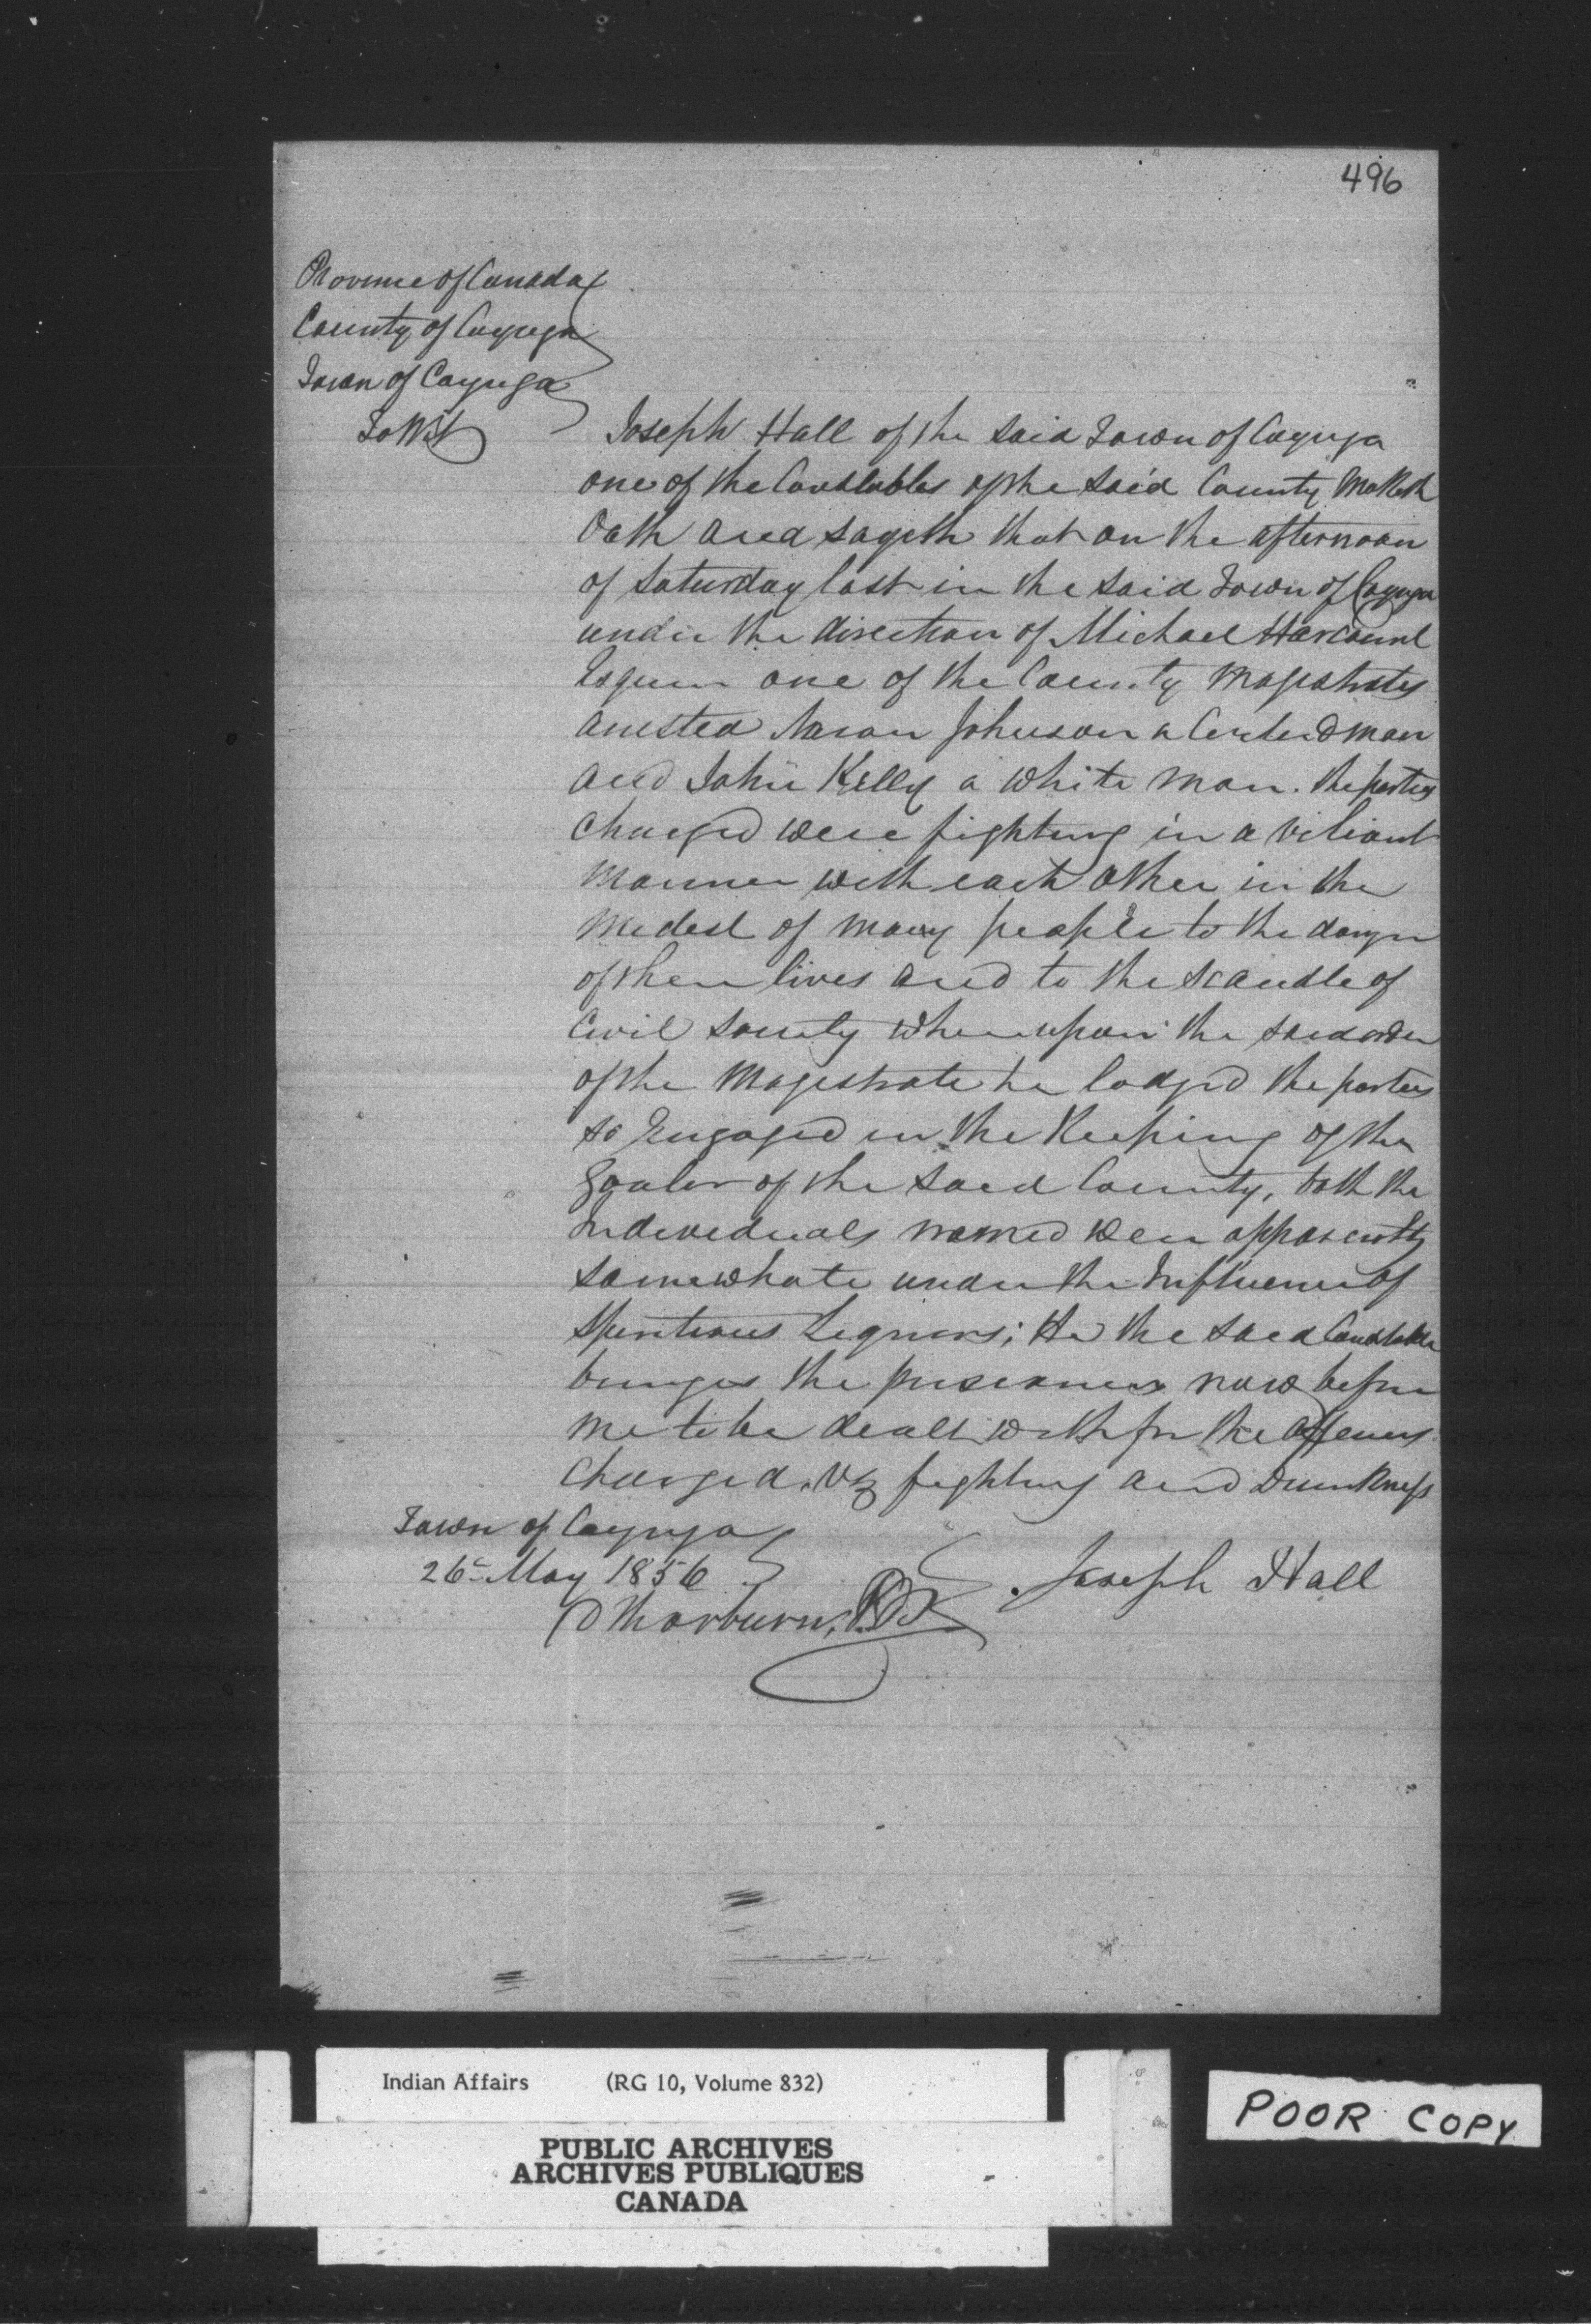 496
Province of Canada
County of Cayuga
Town of Cayuga
To Wit
Joseph Hall of the said Town of Cayuga
one of the Constables of the said County Maketh
Oath and sayeth that on the afternoon
of Saturday last in the said Town of Cayuga
under the direction of Michael Harcourt
Esquire one of the County Magistrates
arrested Aaron Johnson a man
and John Kelly a white man. the parties
charged were fighting in a violent
manner with each other in the
medest of many people to the danger
of their lives and to the scandle of
Civil Society whereupon the said order
of the Magestrate he lodged the parties
so Engaged in the Keeping of the
Goaler of the said County, both the
Indeveduals named were apparently
somewhate under the Influence of
Spiritious Liquors; He the said Constable
bringes the prisoners now before
me to be dealt with for the offences
charged. Viz fighting and Drunkness
Town of Cayuga
26 May 1856
Joseph Hall
D Thorburn,
Indian Affairs (RG 10, Volume 832)
PUBLIC ARCHIVES
ARCHIVES PUBLIQUES
CANADA
POOR COPY